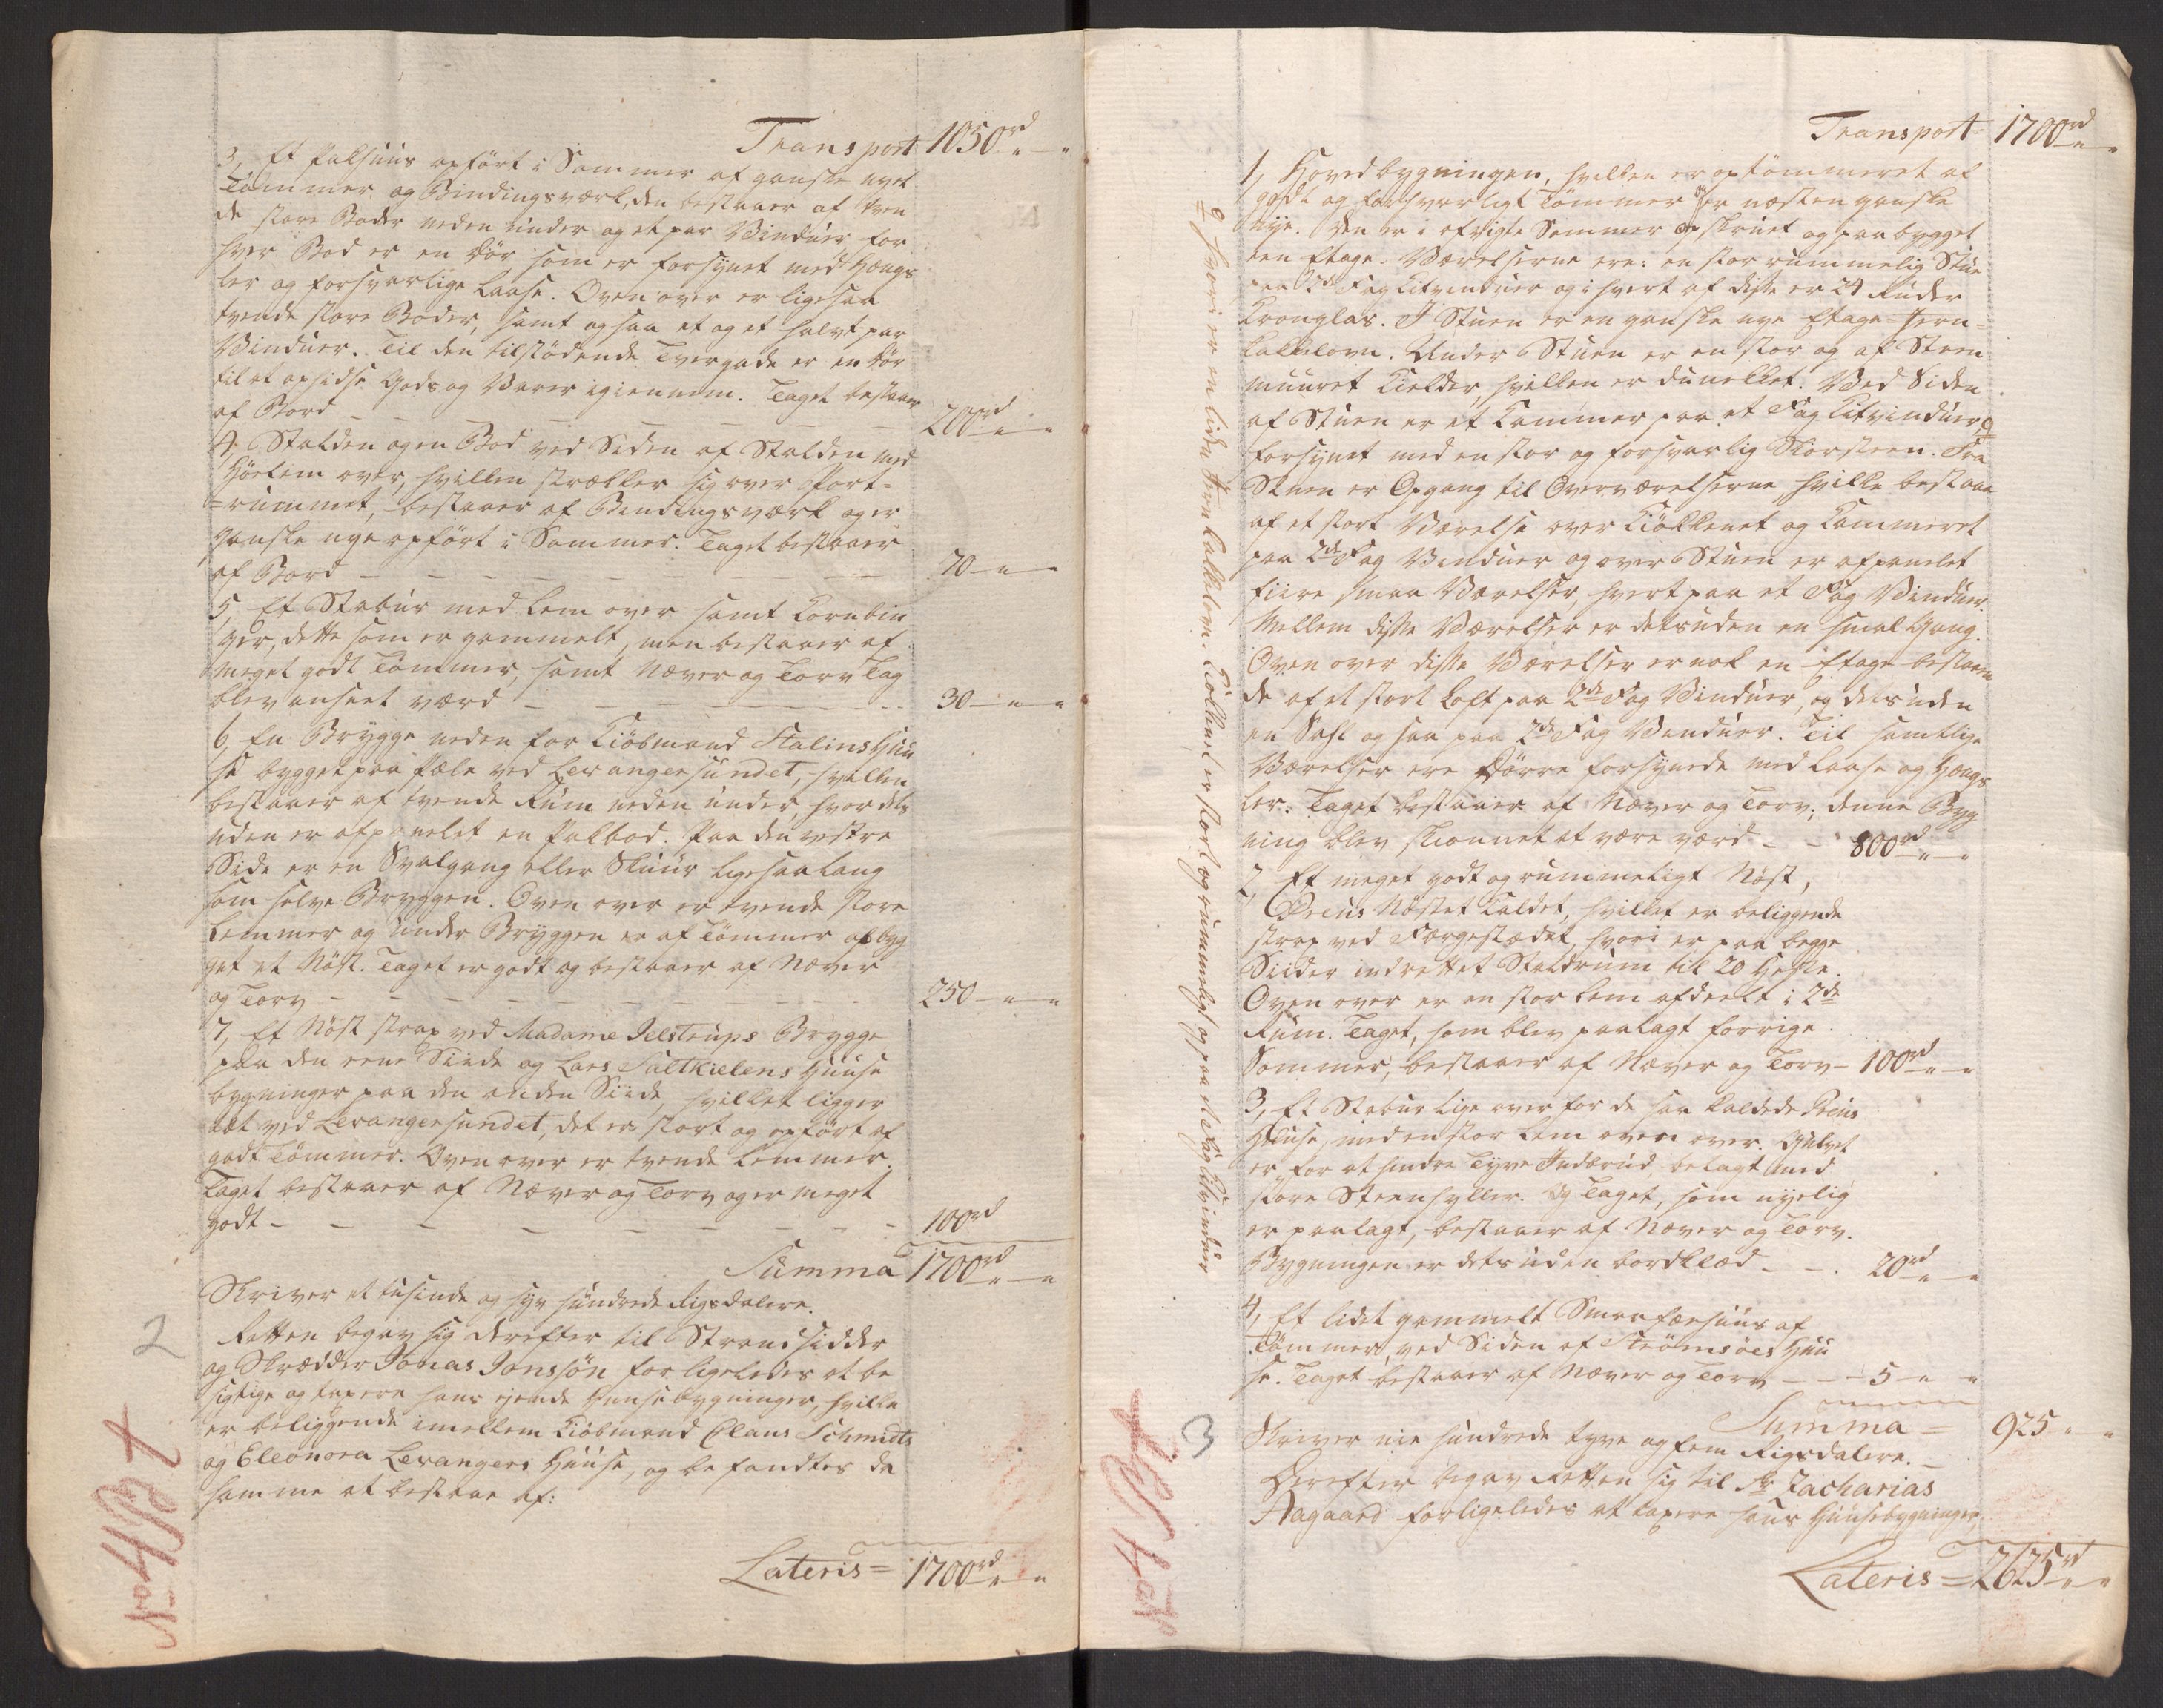 Transport 1050rd „ — „
3, Et Pakhuus opfört i Sommer af ganske nyet
Tömmer og Bindingsværk, den bestaaer af tven
de store Boder neden under og et par Vinduer, for
hver Bod er en Dör som er forsynet med Hængs
ler og forsvarlige Laase. Oven over er ligesaa
tvende store Boder, samt ogsaa et og et halvt par
Vinduer. Til den tilstödende Tvergade er en Dör
til at ophidse Gods og Varer igiennem. Taget bestaaer
af Bord — — — — — — 200rd „ — „
4, Stalden og en Bod ved Siden af Stalden med
Höelem over, hvilken strækker sig over Port-
=rummet, bestaaer af Bindingsværk og er
ganske nye opfört i Sommer. Taget bestaaer
af Bord — — — — — — 70 — „ — „
5, Et Stabur med Lem over samt Kornbin
ger, dette som er gammelt, men bestaaer af
meget godt Tömmer, samt Næver og Torv Tag
blev anseet værd — — — — — 30 — „ — „
6, En Brygge neden for Kiöbmand Stalins Huu
se bygget paa Pæle ved Levangersundet, hvilken
bestaaer af tvende Rum neden under, hvor des
uden er afpanelet en Pakbod. Paa den vestre
Side er en Svalgang eller Skuur ligesaa lang
som selve Bryggen. Oven over er tvende store
Lemmer og under Bryggen er af Tömmer opbyg
get et Nöst. Taget er godt og bestaaer af Næver
og Torv — — — — — — — 250 — „ — „
7, Et Nöst strax ved Madame Jelstrups Brygge
paa den eene Siide og Lars Saltkielens Huuse
bygninger paa den anden Siide, hvilket ligger
tæt ved Levangersundet, det er stort og opfört af
godt Tömmer. Oven over er tvende Lemmer.
Taget bestaaer af Næver og Torv og er meget
godt — — — — — — — 100rd
Summa 1700rd „ — „
Skriver et tusinde og syv hundrede Rigsdalere.
Retten begav sig derefter til Strandsidder
og Skrædder Jonas Jonssön for ligeledes at be
sigtige og taxere hans ejende Huusebygninger, hvilke
er beliggende imellem Kiöbmand Claus Schmidts
og Eleonora Levangers Huuse, og befandtes de
samme at bestaae af:
Lateris = 1700rd „ — „
2
No 4
Transport = 1700rd „ — „
1, Hovedbygningen, hvilken er optömmeret af
godt og forsvarligt Tömmer og er næsten ganske
nye. Den er i afvigte Sommer opskruet og paabygget
een Etage. Værelserne ere: en stor rummelig Stue
paa 2de Fag Kitvinduer og i hvert af disse er 24 Ruder
Kronglas. I Stuen er en ganske nye Etage-Jern=
kakkelovn. Under Stuen er en stor og af Steen
muuret Kielder, hvilken er dunelket. Ved Siden
af Stuen er et Kammer paa et Fag Kitvinduer,
forsynet med en stor og forsvarlig Skorsteen. Fra
Stuen er Opgang til Overværelserne hvilke bestaae
af et stort Værelse over Kiökkenet og Kammeret
paa 2de Fag Vinduer og over Stuen er afpanelet
fiire smaa Værelser, hvert paa et Fag Vinduer.
Mellem disse Værelser er desuden en smal Gang.
Oven over disse Værelser er nok en Etage bestaaen
de af et stort Loft paa 2de Fag Vinduer, og desuden
en Sahl ogsaa paa 2de Fag Vinduer. Til samtlige
Værelser ere Dörre forsynede med Laase og Hængs
ler. Taget bestaaer af Næver og Torv; denne Byg
ning blev skiönnet at være værd — — 800rd „ — „
2, Et meget godt og rummeligt Nöst,
Preus Nöstet kaldet, hvilket er beliggende
strax ved Færgestædet, hvori er paa begge
Siider indrettet Staldrum til 20 Heste.
Oven over er en stor Lem afdeelt i 2de
Rum. Taget, som blev paalagt forrige
Sommer, bestaaer af Næver og Torv — 100rd „ — „
3, Et Stabur lige over for de saa kaldede Preus
Huuse, med en stor Lem oven over. Gulvet
er for at hindre Tyve Indbrud, belagt med
store Steenheller. Og Taget, som nyelig
er paalagt, bestaaer af Næver og Torv.
Bygningen er desuden bordklæd — — 20rd „ — „
4, Et lidet gammelt Smaafæehuus af
Tömmer, ved Siden af Strömsöes Huu
se. Taget bestaaer af Næver og Torv — — 5 — „ — „
Summa = 925 „ „
Skriver nie hundrede tyve og fem Rigsdalere. —
Derefter begav Retten sig til Sr Zacharias
Aagaard for ligeledes at taxere hans Huusebygninger,
Lateris = 2625rd „ — „
hvori er en liden Jernkakkelovn. Kiökkenet er stort og rummeligt og paa et Fag Kitvinduer
3
No 4